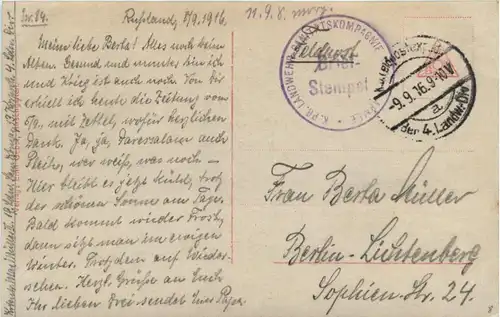 Nr. 84.
Rußland, 8/9. 1916.
Meine liebe Berta! Alles noch beim
Alten. Gesund und munter bin ich
und Krieg ist auch noch. Von Dir
erhielt ich heute die Zeitung vom
5/9., mit Zettel, wofür herzlichen
Dank. Ja, ja, Daressalam auch
Pleite, wer weiß, was noch –
Hier bleibt es jetzt kühl, trotz
der schönen Sonne am Tage.
Bald kommt wieder Frost,
dann sitzt man im ewigen
Winter. Trotzdem auf Wieder-
sehen. Herzl. Grüße an Euch
Ihr lieben Drei sendet Euer Papa.
11.9. 8. morg.
Feldpost
K. PR. LANDWEHR-SANITÄTSKOMPAGNIE
Brief
Stempel
-9.9.16. 9-10V.
a
der 4. Landw. Div.
Frau Berta Müller
Berlin-Lichtenberg
Sophien-Str. 24.
8